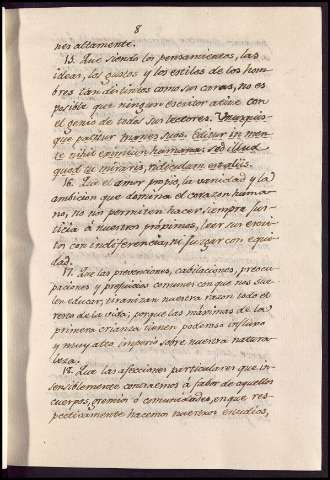 8
nes altamente.
15. Que siendo los pensamientos, las
ideas, los gustos y los estilos de los hom
bres tan distintos como sus caras, no es
posible que ningun escritor atine con
el genio de todos sus lectores.
que patitur manes suos.
te nihil humana: sed illud
quod tu miraris, ridiculum est aliis.
16. Que el amor propio, la vanidad y la
ambicion que domina el corazon huma
no, no nos permiten hacer siempre jus
ticia à nuestros próximos, leer sus escri
tos con indiferencia, ni juzgar con equi
dad.
17. Que las prevenciones, cabilaciones, preocu
paciones y prejuicios comunes con que nos sue
len educar, tiranizan nuestra razon todo el
resto de la vida; porque las máximas de la
primera crianza tienen poderoso influxo
y muy alto imperio sobre nuestra natura
leza.
18. Que las afecciones particulares que in
sensiblemente contraemos à fabor de aquellos
cuerpos, gremios ò comunidades, en que res
pectivamente hacemos nuestros estudios,